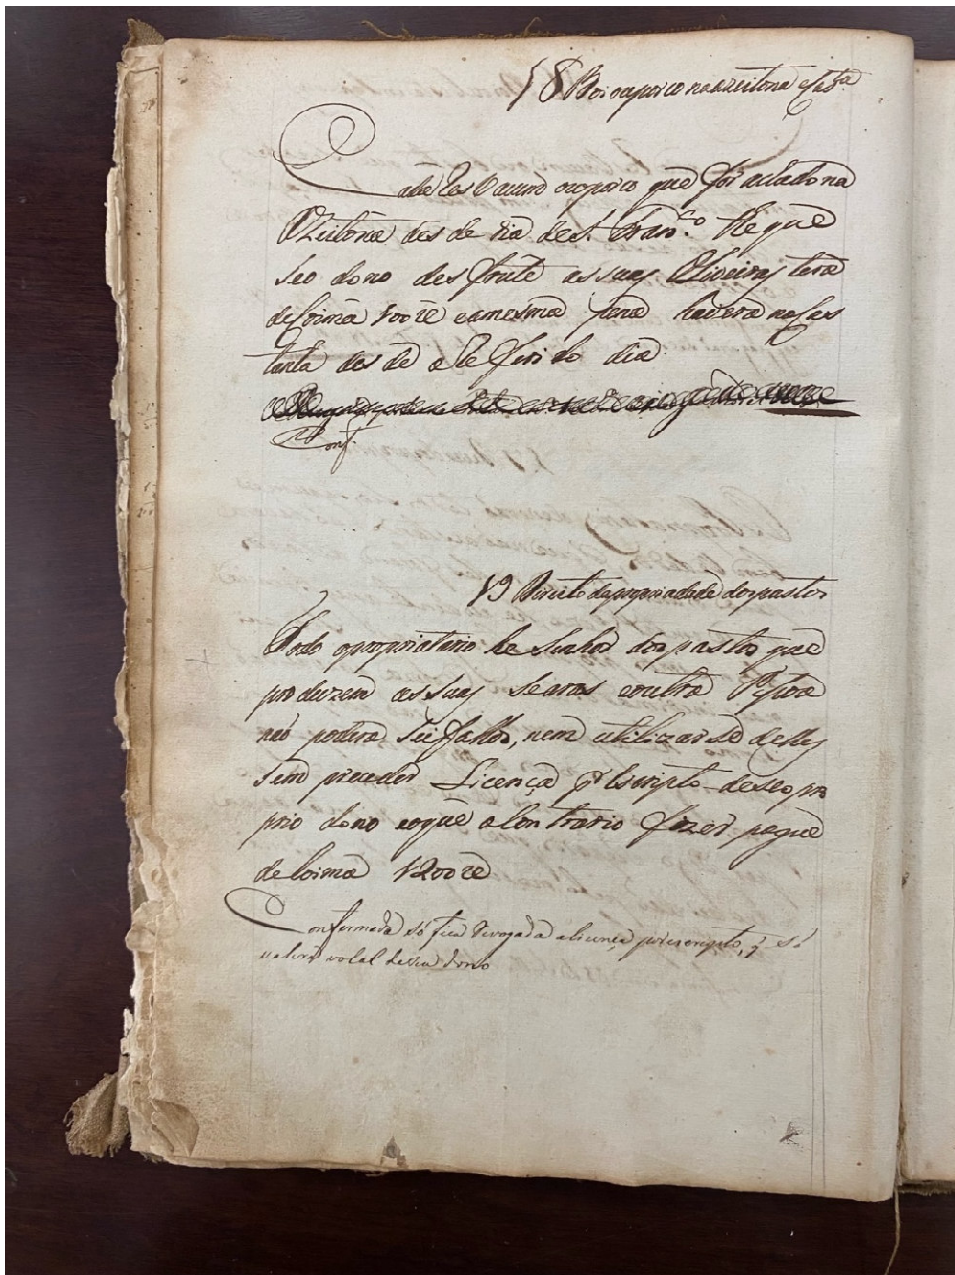 18 Boi ou porco na azeitona e
Cada res Vacum ou porco que for achado na
Azeitona des de dia de S. Fran.co the que
seo dono des frute as suas Oliveiras tera
de Coima 100 re e a mesma pena havera na Cas
tanha des de o Referido dia
Conf.
19 Direito de propriadade dos pastos
Todo o propriatario he Senhor dos pastos que
produzem as suas searas e outra
não podera Sêr, nem utilizar se delles
sem preceder Licença pr Escripto de seo pro
prio dono e o que o Contrario fizer pague
de Coima 1200 re
Conformada só fica revogada a licença por escripto, q só
valerá vocal de seu dono